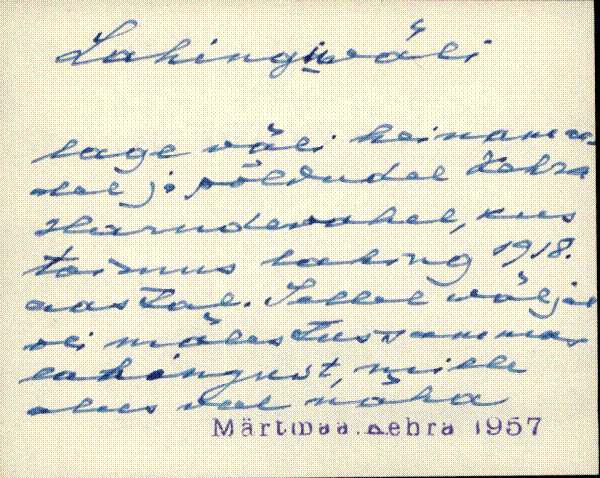 Lahinguväli
lage väli heinamaa-
del ja põldudel Aebra
Harude vahel, kus
toimus lahing 1918.
aastal. Sellel väljal
oli mälestussammas
lahingust, mille
alus veel näha
Märtmaa. Aebra 1957